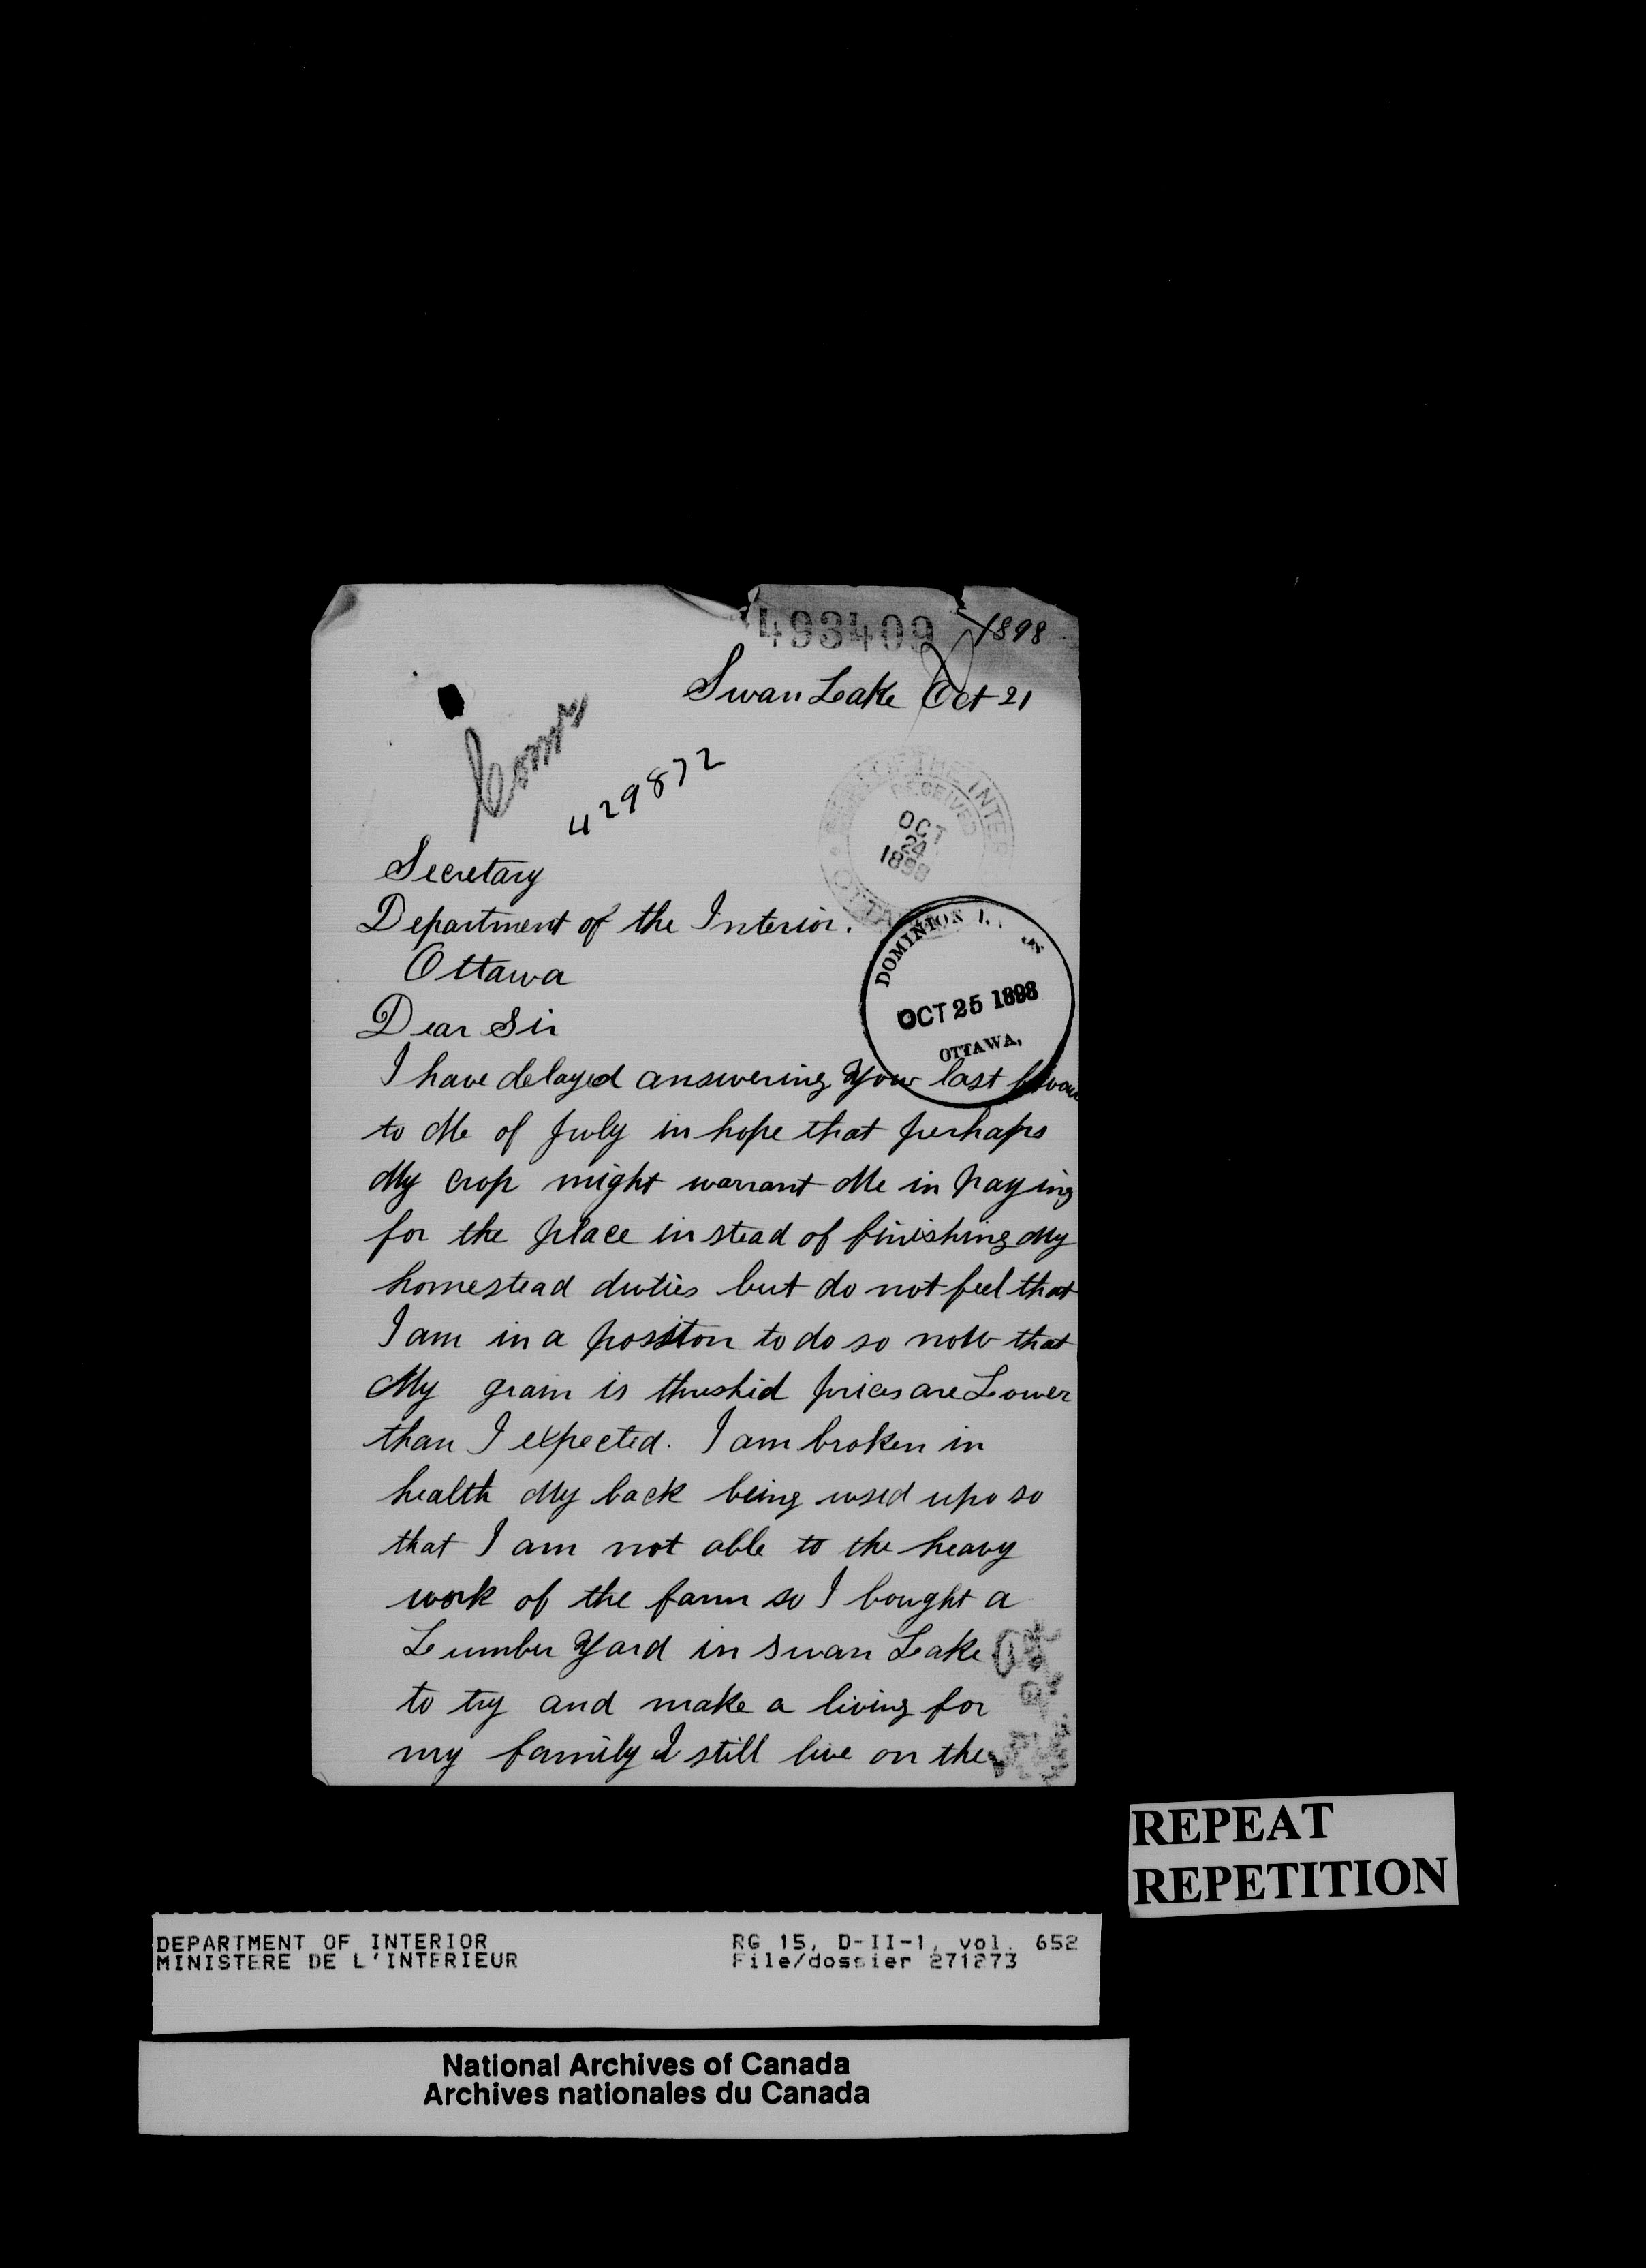 493409
1898
Swan Lake Oct 21
429872
DEPT OF THE INTERIOR
RECEIVED
OCT
24
1898
OTTAWA
Secretary
Department of the Interior.
Ottawa
DOMINION
OCT 25 1898
OTTAWA,
Dear Sir
I have delayed answering Your last favour
to Me of July in hope that perhaps
My crop might warrant Me in paying
for the place in stead of finishing My
homestead duties but do not feel that
I am in a possiton to do so now that
My grain is thrushid prices are Lower
than I expected. I am broken in
health My back being used up so
that I am not able to the heavy
work of the farm so I bought a
Lumber Yard in Swan Lake
to try and make a living for
my family I still live on the
REPEAT
REPETITION
DEPARTMENT OF INTERIOR RG 15, D-II-1, vol. 652
MINISTERE DE L'INTERIEUR File/dossier 271273
National Archives of Canada
Archives nationales du Canada